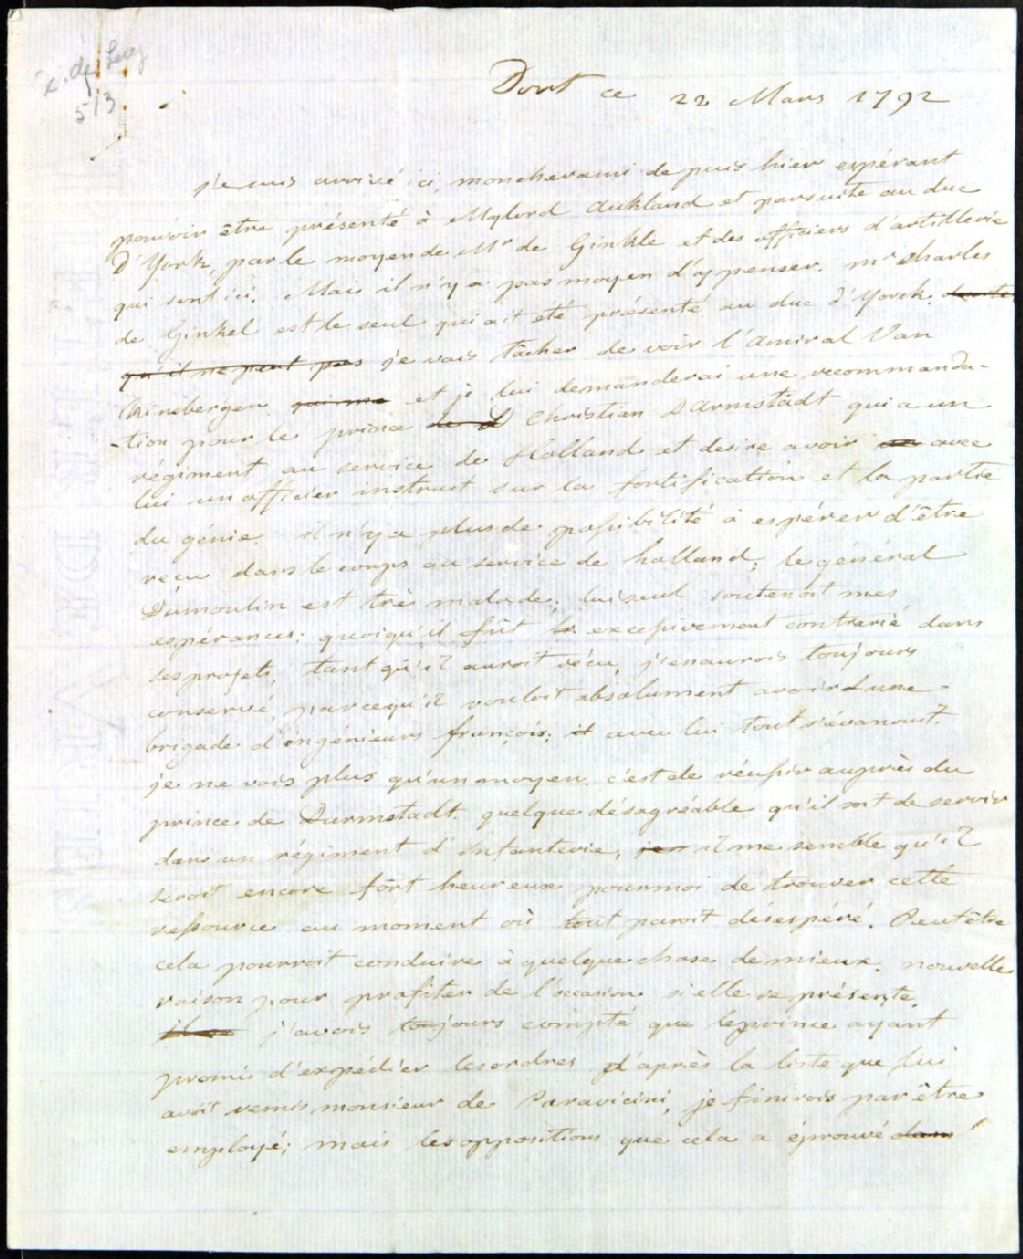 Dort ce 22 Mars 1792
je suis arrivé ici, moncherami depuis hier espérant
pouvoir être présenté à Mylord Aukland et parsuite au duc
D'York, par le moyen de Mr de Ginkle et des officiers d'artillerie
qui sont ici. Mais il n'y a pas moyen d'y penser. mr charles
de Ginkel est le seul qui ait été présenté au duc D'Yorck.
qu'il ne peut pas je vais tâcher de voir l'amiral Van
Kinsbergen et je lui demanderai une recommanda-
-tion pour le prince Christian D'armstadt qui a un
régiment au service de Holland et desire avoir avec
lui un officier instruit sur la fortification et la partie
du génie. il n'y a plus de possibilité à espérer d'être
reçu dans le corps au service de holland, le général
Dumoulin est très malade, lui seul soutenoit mes
espérances; quoiqu'il fût excessivement contrarié dans
ses projets, tant qu'il auroit vécu, j'enaurois toujours
conservé, parcequ'il vouloit absolument avoir une
brigade d'ingénieurs françois; avec lui tout s'évanouit.
je ne vois plus qu'un moyen. c'est de réussir auprès du
prince de Darmstadt. quelque désagréable qu'il soit de servir
dans un régiment d'infanterie, il me semble qu'il
seroit encore fort heureux pour moi de trouver cette
ressource au moment où tout paroit désespéré. Peutêtre
cela pourroit conduire à quelque chose de mieux. nouvelle
raison pour profiter de l'occasion si elle se présente.
j'avois toujours compté que le prince ayant
promis d'expédier les ordres d'après la liste que lui
avoit remis monsieur de Paravicini, je finirois par être
employé; mais les oppositions que cela a éprouvé dans